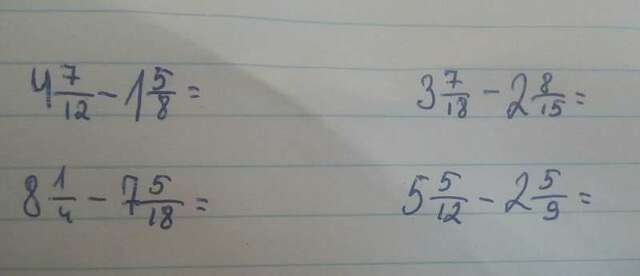 4 7/12 - 1 5/8 = 3 7/18 - 2 8/15 =
8 1/4 - 7 5/18 = 5 5/12 - 2 5/9 =